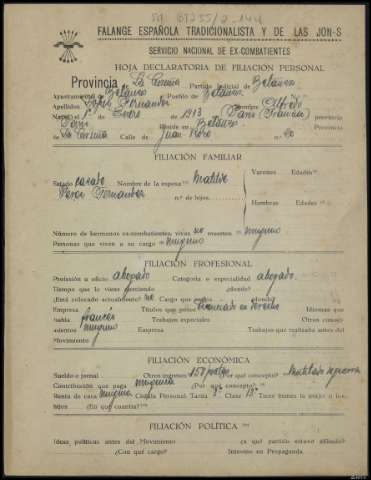 FALANGE ESPAÑOLA TRADICIONALISTA Y DE LAS JON-S
SERVICIO NACIONAL DE EX-COMBATIENTES
HOJA DECLARATORIA DE FILIACIÓN PERSONAL
Provincia La Coruña Partido Judicial de Betanzos
Ayuntamiento de Betanzos Pueblo de Betanzos
Apellidos López Fernandez Nombre Alfredo
Nació el 1º de Enero de 1913 Paris (Francia) Provincia
Reside en Betanzos Provincia
La Coruña Calle de Juan n.º 20
FILIACIÓN FAMILIAR
Varones Edades
Estado casado Nombre de la esposa Matilde
Fernandez n.º de hijos
Hembras Edades
Número de hermanos ex-combatientes, vivos no muertos ninguno
Personas que viven a su cargo ninguno
FILIACIÓN PROFESIONAL
Profesión u oficio abogado Categoría o especialidad abogado
Tiempo que lo viene ejerciendo ¿dónde?
¿Está colocado actualmente? no Cargo que ¿dónde?
Empresa Títulos que posee Licenciado en Derecho Idiomas que
habla francés Trabajos especiales Otros conoci-
mientos ninguno Empresa Trabajos que realizaba antes del
Movimiento
FILIACIÓN ECONÓMICA
Sueldo o jornal Otros ingresos 150 ptas ¿Por qué concepto? Mutilado de guerra
Contribución que paga ninguna ¿Por qué concepto?
Renta de casa ninguna Cédula Personal: Tarifa Clase 13ª Tiene bienes la mujer o los
hijos ¿En qué cuantía?
FILIACIÓN POLÍTICA
Ideas políticas antes del Movimiento ¿a qué partido estuvo afiliado?
¿Con qué cargo? Intervino en Propaganda